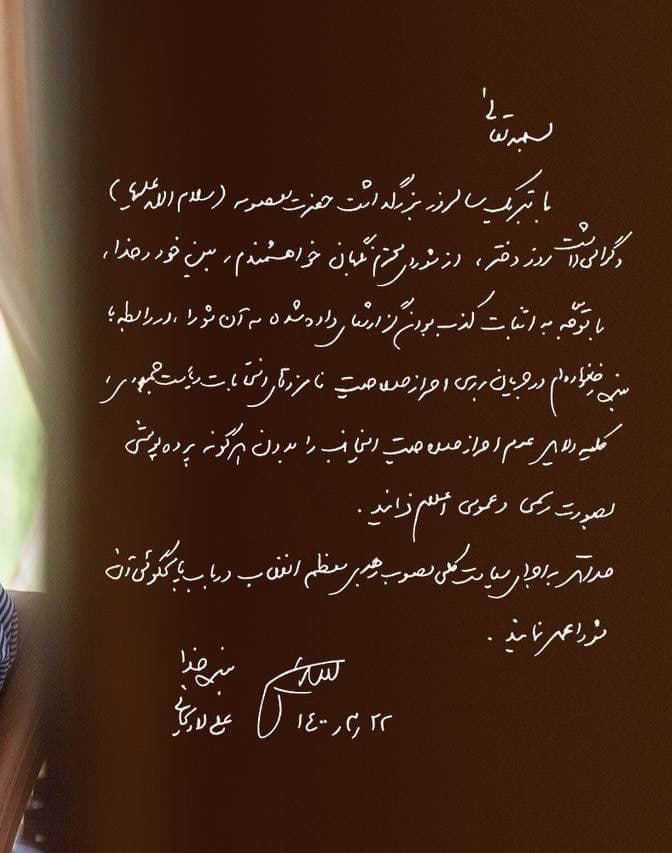 بسمه تعالی
با تبریک سالروز بزرگداشت حضرت معصومه (سلام الله علیها)
و گرامی‌داشت روز دختر، از شورای محترم نگهبان خواهشمندم، بین خود و خدا،
با توجّه به اثبات کذب بودن گزارشهای داده شده به آن شورا، در رابطه با
بنده و خانواده‌ام در جریان بررسی احراز صلاحیت نامزدهای انتخابات ریاست جمهوری،
کلیه دلایل عدم احراز صلاحیت اینجانب را بدون هرگونه پرده‌پوشی
بصورت رسمی و عمومی اعلام فرمائید.
حداقل به اجرای سیاست کلی مصوب رهبری معظم انقلاب در باب پاسخگوئی آن
شورا عمل نمائید.
بنده خدا
علی لاریجانی
۱۴۰۰ر۳ر۲۲